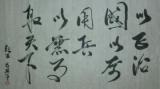 以正治
國以奇
用兵
以無事
取天下